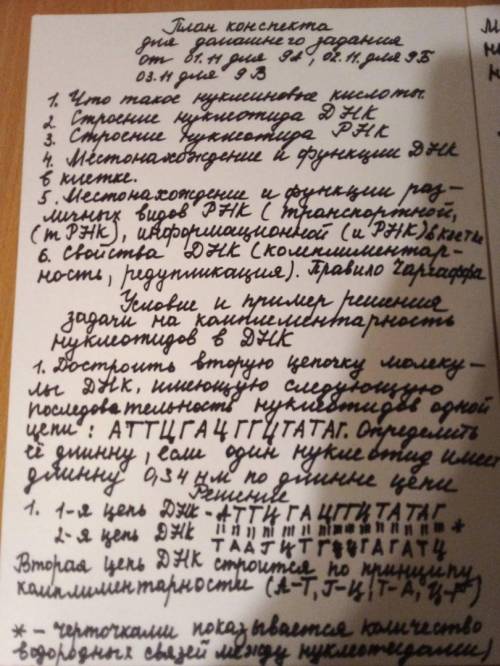 План конспекта
для домашнего задания
от 01.11 для 9А, 02.11 для 9Б
03.11 для 9В
1. Что такое нуклеиновые кислоты.
2. Строение нуклеотида ДНК
3. Строение нуклеотида РНК
4. Местонахождение и функции ДНК
в клетке.
5. Местонахождение и функции раз-
личных видов РНК (транспортной,
(тРНК), информационной (иРНК) в клетке
6. Свойства ДНК (комплиментар-
ность, редупликация). Правило Чаргаффа
Условие и пример решения
задачи на комплементарность
нуклеотидов в ДНК
1. Достроить вторую цепочку молеку-
лы ДНК, имеющую следующую
последовательность нуклеотидов одной
цепи: АТТЦГАЦГГЦТАТАГ. Определить
её длинну, если один нуклеотид имеет
длинну 0,34 нм по длинне цепи
Решение
1. 1-я цепь ДНК - АТТЦГАЦГГЦТАТАГ
2-я цепь ДНК *
Вторая цепь ДНК строится по принципу
комплиментарности (А-Т, Г-Ц, Т-А, Ц-Г)
* - черточками показывается количество
водородных связей между нуклеотидами)